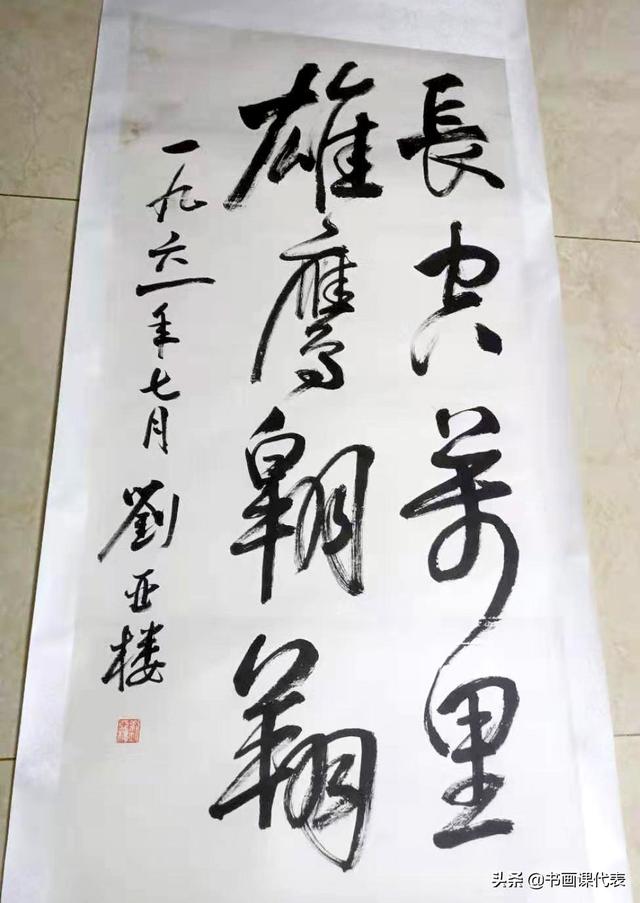 長空萬里
雄鹰翱翔
一九六一年七月
劉亚楼
头条 @书画课代表